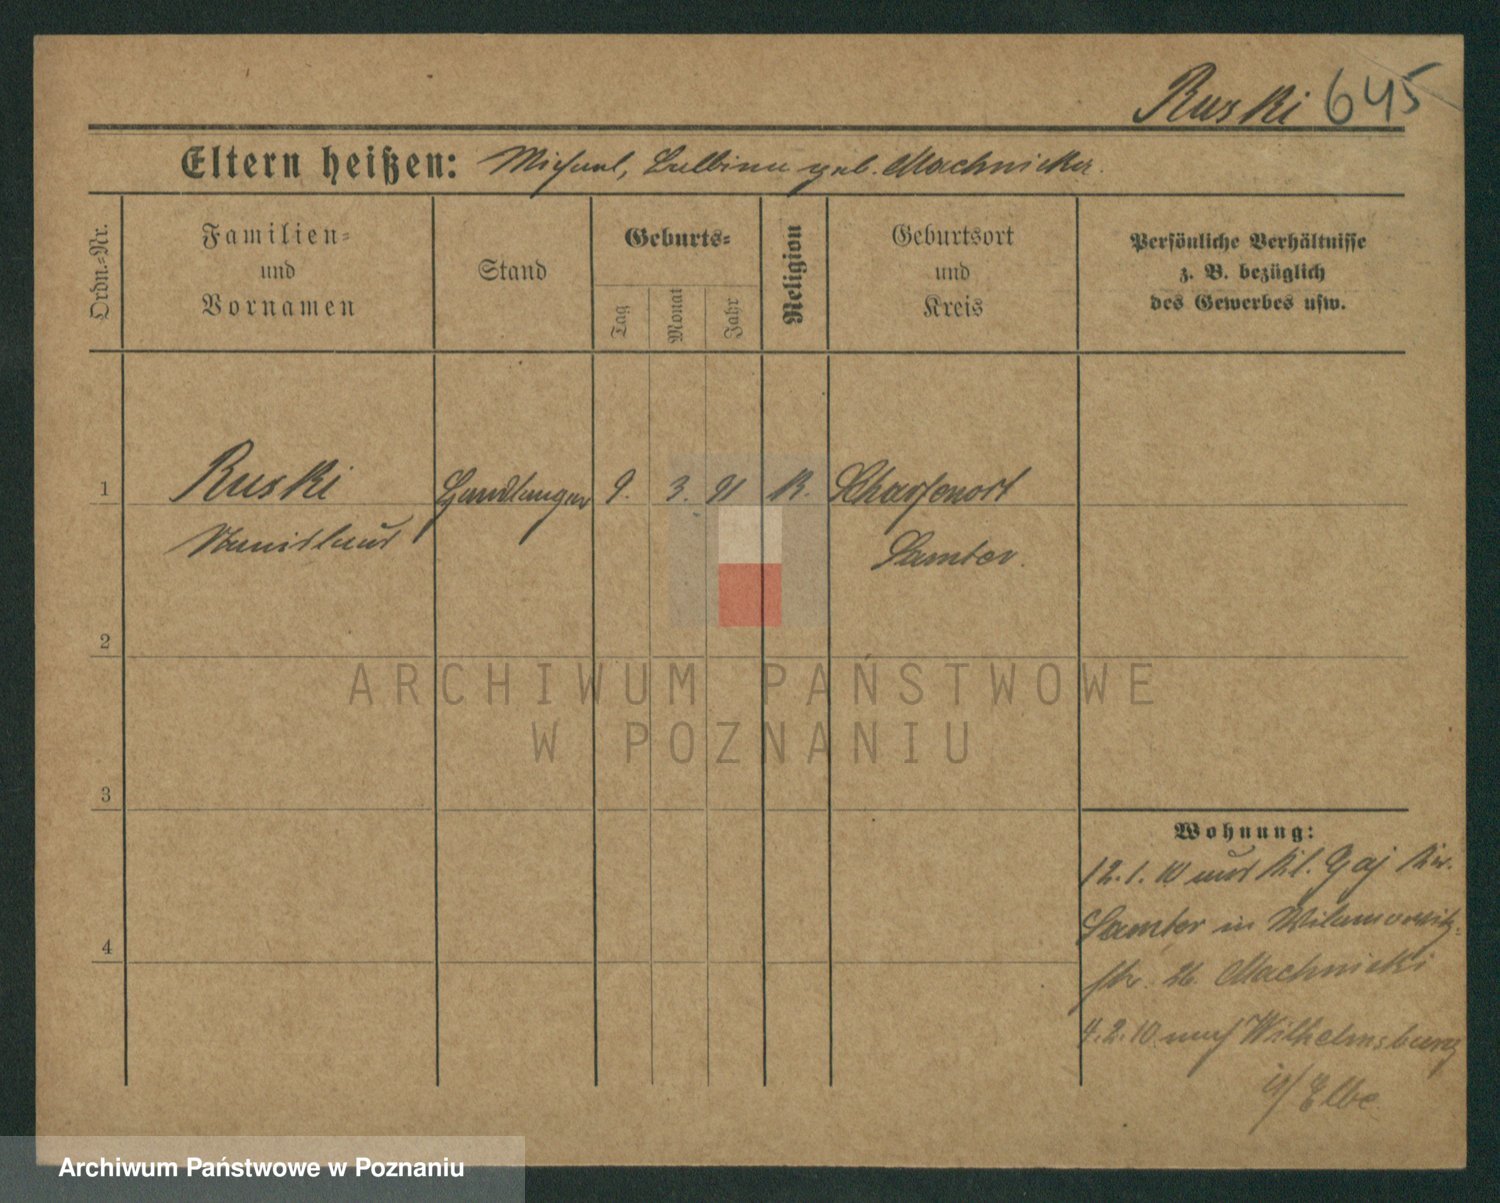 Ruski 645
Eltern heißen: Michael, Balbina geb. Machnicka.
Ordn.-Nr.
Familien-
und
Vornamen
Stand
Geburts-
Tag
Monat
Jahr
Religion
Geburtsort
und
Kreis
Persönliche Verhältnisse
z. B. bezüglich
des Gewerbes usw.
1
Ruski Handlanger 9. 3. 91 K. Scharfenort
Stanislaus Samter.
2
ARCHIWUM PAŃSTWOWE
W POZNANIU
3
Wohnung:
12.1.10 aus Kl. Gaj Kr.
4
Samter in Wilamowitz-
str. 26. Machnicki
4.2.10 nach Wilhelmsburg
a/ Elbe
Archiwum Państwowe w Poznaniu